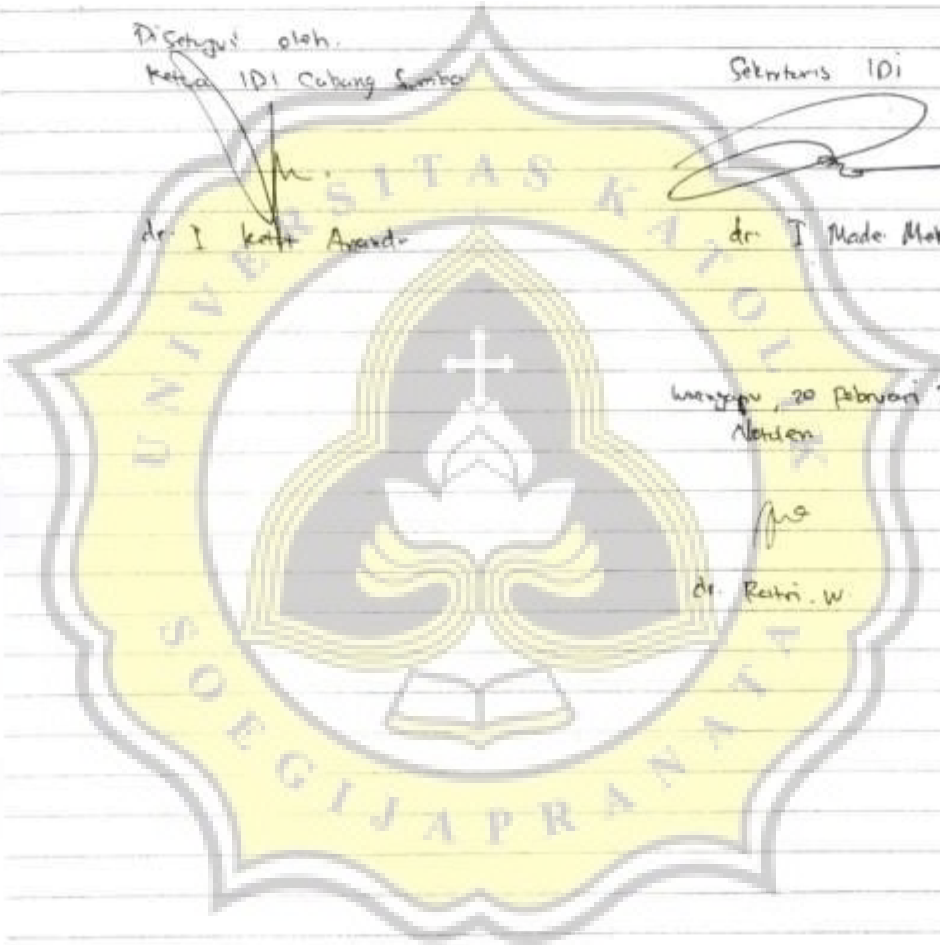 Disetujui oleh.
Ketua IDI Cabang Sumba
Sekretaris IDI
dr. I Ketut
dr. I Made
20 Februari
Notulen
dr. Ratri. W.
UNIVERSITAS KATOLIK
SOEGIJAPRANATA